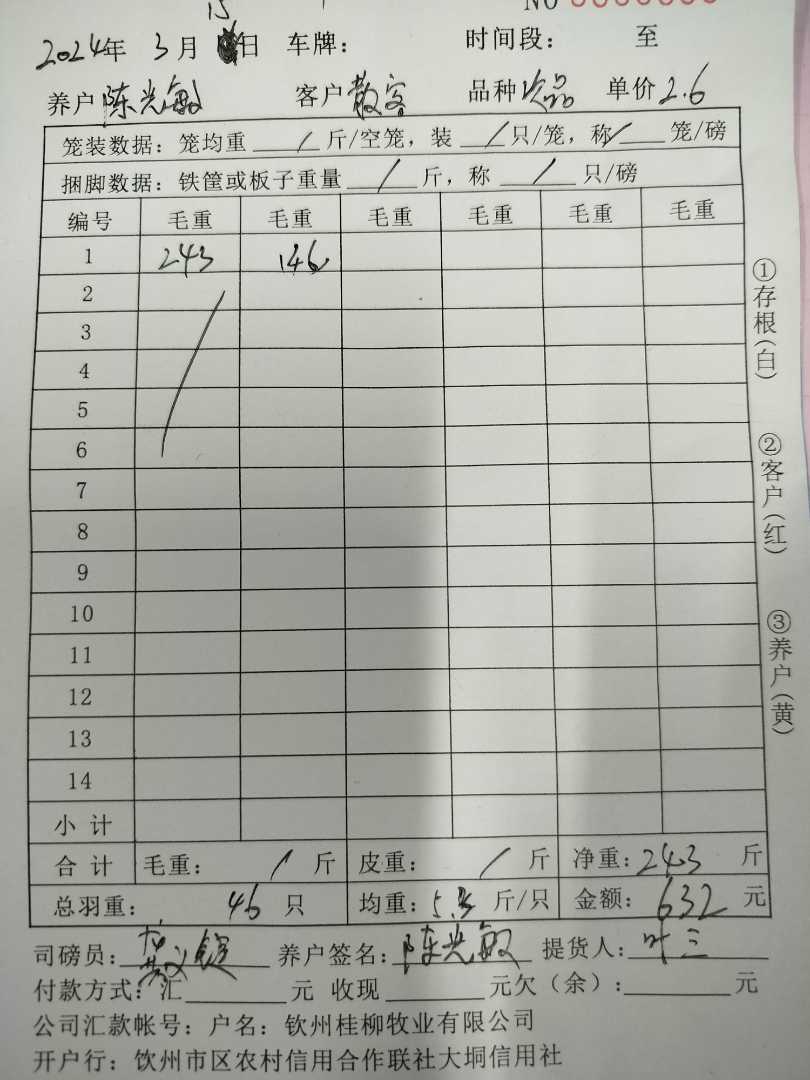 15
2024年 3月 日 车牌： 时间段： 至
养户 陈光敏 客户 散客 品种 次品 单价 2.6
笼装数据：笼均重 / 斤/空笼，装 / 只/笼，称 / 笼/磅
捆脚数据：铁筐或板子重量 / 斤，称 / 只/磅
编号 毛重 毛重 毛重 毛重 毛重 毛重
1 243 146
2
3
4
5
6
7
8
9
10
11
12
13
14
小计
合计 毛重： / 斤 皮重： / 斤 净重：243 斤
总羽重： 46 只 均重：5.3 斤/只 金额：632 元
司磅员： 养户签名：陈光敏 提货人：叶三
付款方式：汇 元 收现 元欠（余）： 元
公司汇款帐号：户名：钦州桂柳牧业有限公司
开户行：饮州市区农村信用合作联社大垌信用社
①存根(白) ②客户(红) ③养户(黄)